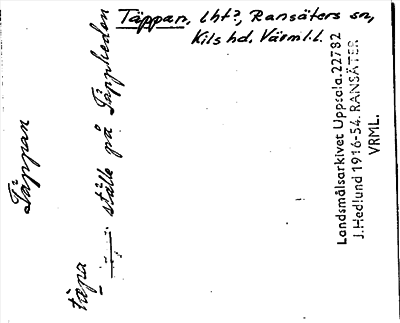 Täppan, lht?, Ransäters sn,
Kils hd. Värml.l.
Täppan
tæpa
ställe på Täppheden
Landsmålsarkivet Uppsala. 22782
J. Hedlund 1916-54. RANSÄTER
VRML.